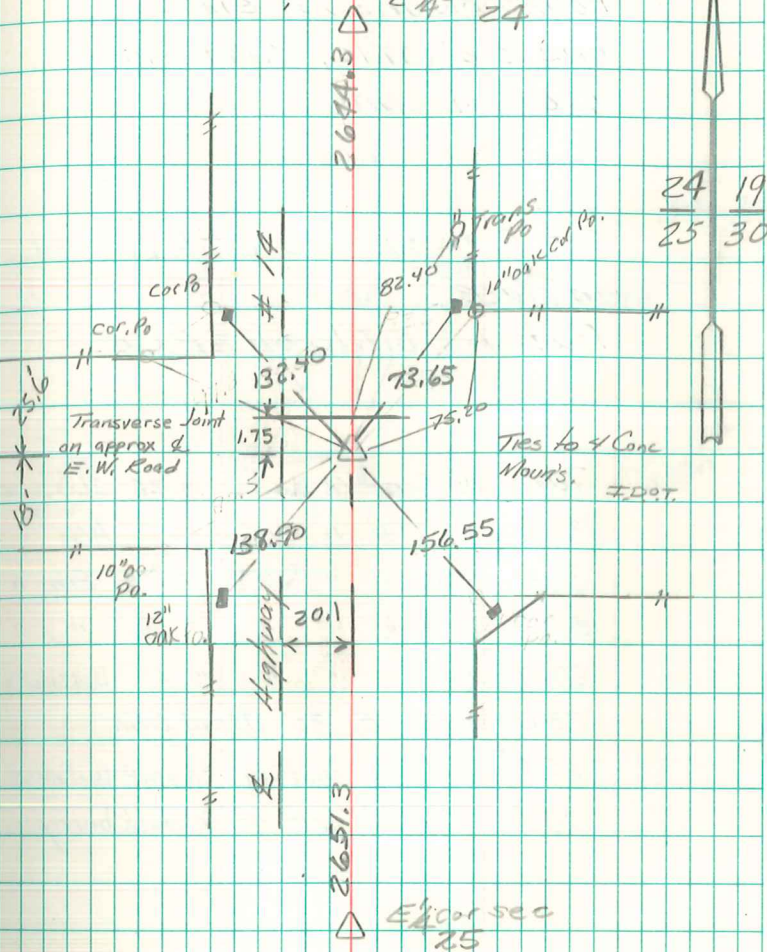 24
2644.3
24 19
25 30
Trans
Po
10" oak Cor Po.
# 14
82.40
Cor Po
Cor. Po
132.40
73.65
25.6
75.20
Transverse Joint
on approx ℄
E.W. Road
1.75
Ties to 4 Conc
Moun's.
I.D.O.T.
18
138.90
156.55
10"
Po.
12"
oak
20.1
℄ Highway
2651.3
E¼ cor sec
25